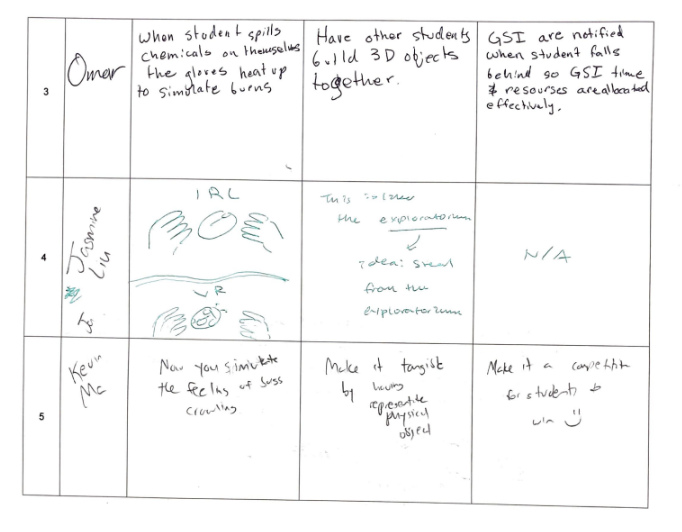 3
Omar
When student spills
chemicals on themselves
the gloves heat up
to simulate burns
Have other students
build 3D objects
together.
GSI are notified
when student falls
behind so GSI time
& resourses are allocated
effectively.
4
Jasmine
Liu
IRL
VR
This is like
the exploratorium
idea: steal
from the
exploratorium
N/A
5
Kevin
Ma
Now you simulate
the feeling of
crawling
Make it tangible
by having
physical
object
Make it a
for students to
win